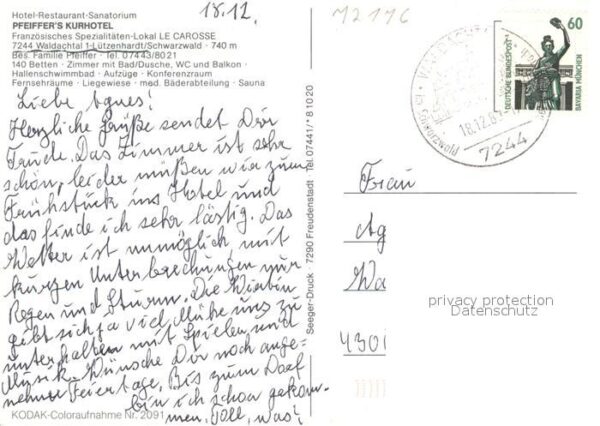 18.12.
M2171C
Hotel-Restaurant-Sanatorium
PFEIFFER'S KURHOTEL
Französisches Spezialitäten-Lokal LE CAROSSE
7244 Waldachtal 1-Lützenhardt/Schwarzwald · 740 m
Bes. Familie Pfeiffer · Tel. 07443/8021
140 Betten · Zimmer mit Bad/Dusche, WC und Balkon ·
Hallenschwimmbad · Aufzüge · Konferenzraum
Fernsehräume · Liegewiese · med. Bäderabteilung · Sauna
Liebe Agnes!
Herzliche Grüße sendet Dir
Trude. Das Zimmer ist sehr
schön, leider müßen wir zum
Frühstück ins Hotel und
das finde ich sehr lästig. Das
Wetter ist unmöglich mit
kurzen Unterbrechungen nur
Regen und Sturm. Die Wirtin
gibt sich ja viel Mühe uns zu
unterhalten mit Spielen und
Musik. Wünsche Dir noch ange-
nehme Feiertage. Bis zum Dorf
bin ich schon gekom-
men. Toll, was?
KODAK-Coloraufnahme Nr. 2091
Seeger-Druck · 7290 Freudenstadt · Tel. 07441/*81020
60
DEUTSCHE BUNDESPOST
BAVARIA MÜNCHEN
18.12.8
7244
Frau
Ag
Wa
430
privacy protection
Datenschutz